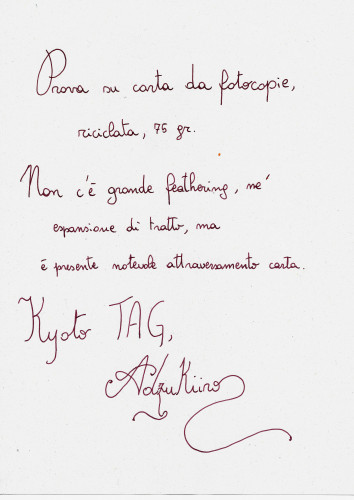 Prova su carta da fotocopie,
riciclata, 75 gr.
Non c'è grande feathering, né
espansione di tratto, ma
è presente notevole attraversamento carta.
Kyoto TAG,
AdzuKiiro